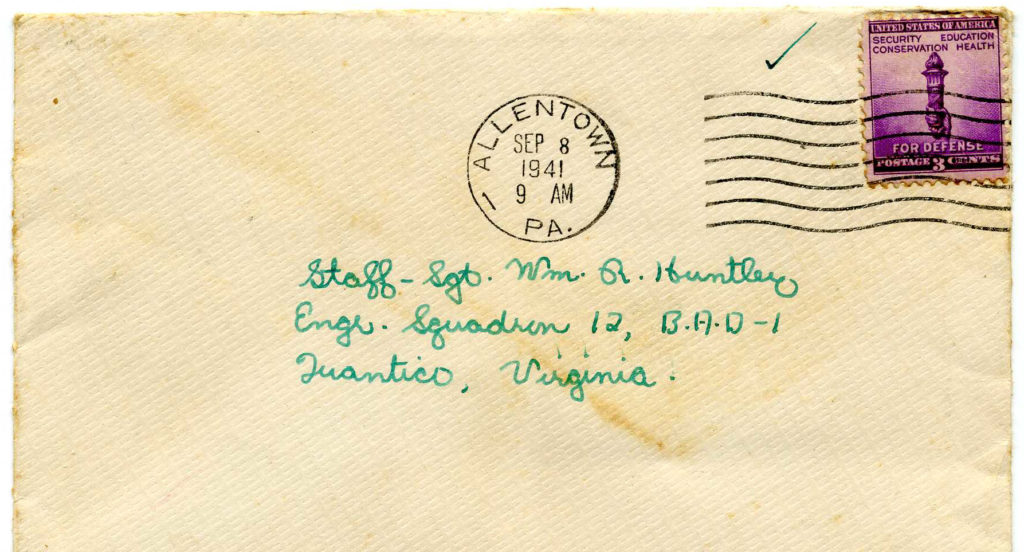 UNITED STATES OF AMERICA
SECURITY EDUCATION
CONSERVATION HEALTH
FOR DEFENSE
POSTAGE 3 CENTS
ALLENTOWN
SEP 8
1941
9 AM
1
PA.
Staff-Sgt. Wm. R. Huntley
Engr. Squadron 12, B.A.D-1
Quantico, Virginia.